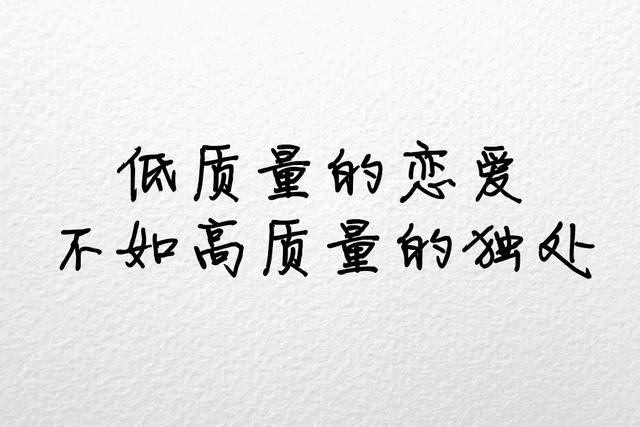 低质量的恋爱
不如高质量的独处